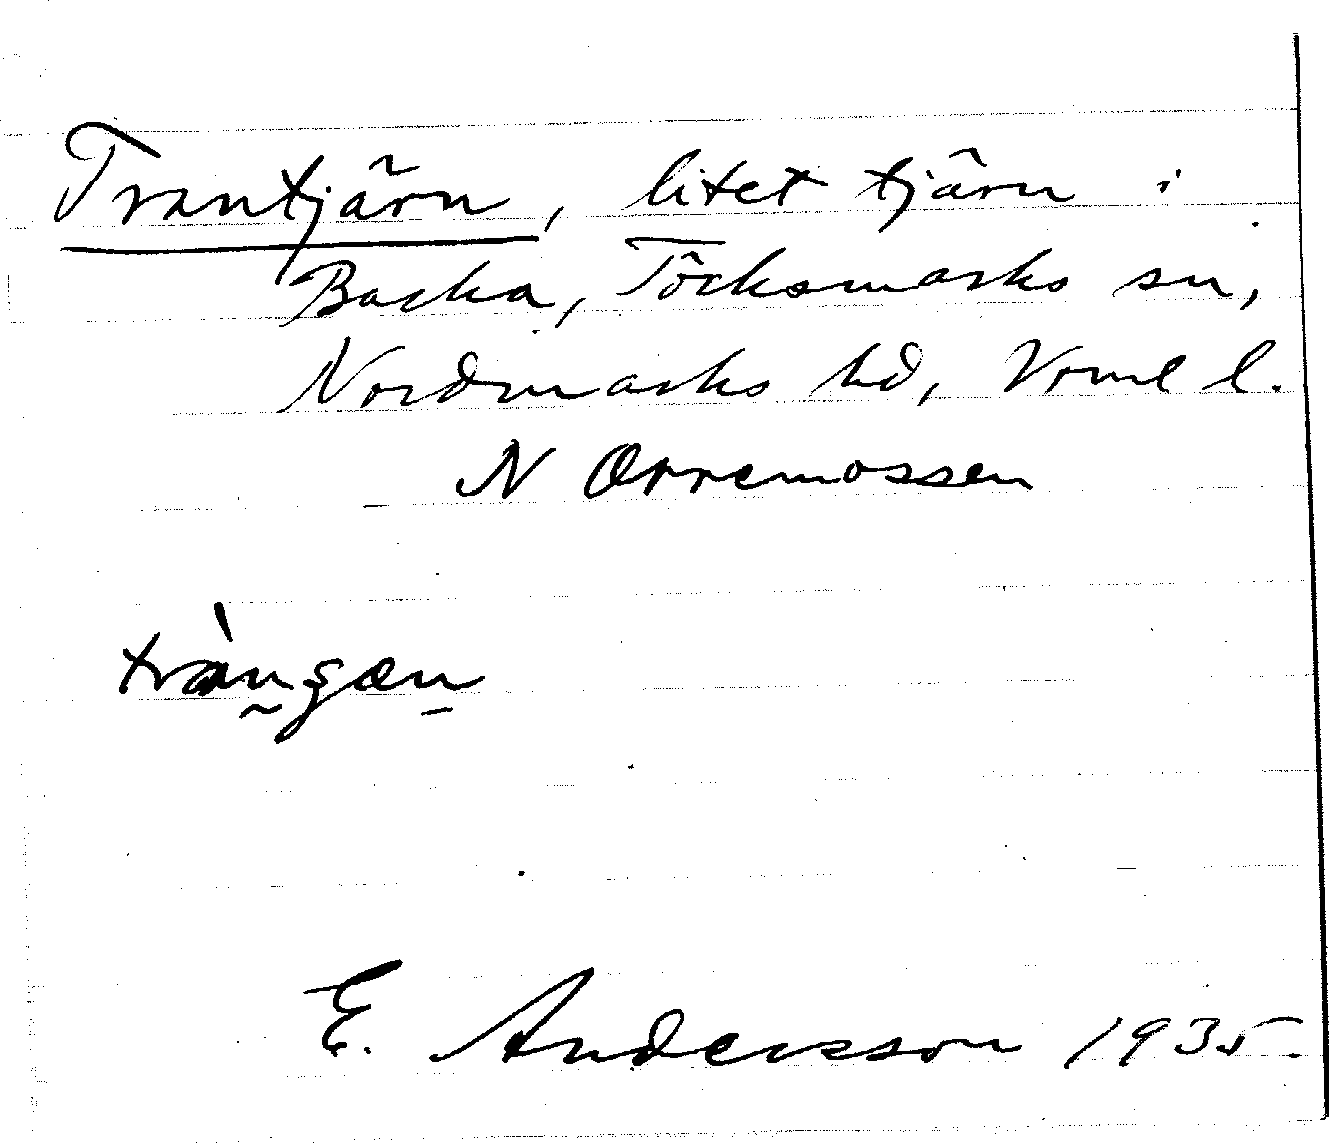 Trantjärn, litet tjärn i
Backa, Töcksmarks sn,
Nordmarks hd, Vrml l.
N Orremossen
E. Andersson 1935.